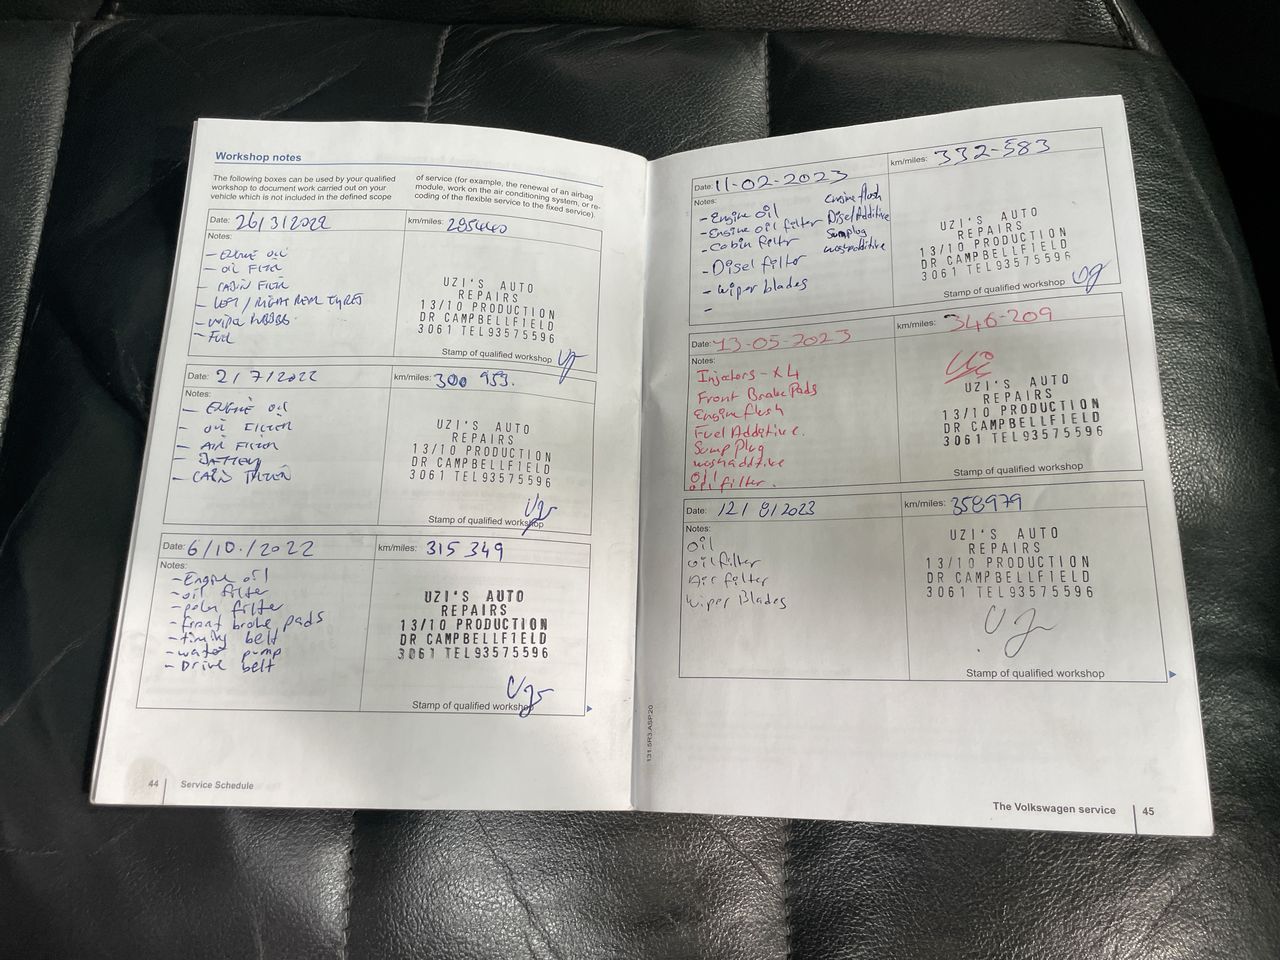 Workshop notes
The following boxes can be used by your qualified
workshop to document work carried out on your
vehicle which is not included in the defined scope
of service (for example, the renewal of an airbag
module, work on the air conditioning system, or re-
coding of the flexible service to the fixed service).
Date: 26/3/2022 km/miles: 295440
Notes:
- ENGINE OIL
- OIL FILTER
- CABIN FILTER
- LEFT / RIGHT REAR TYRES
- WIPER
- Fuel
UZI'S AUTO
REPAIRS
13/10 PRODUCTION
DR CAMPBELLFIELD
3061 TEL93575596
Stamp of qualified workshop
Date: 2/7/2022 km/miles: 300 953.
Notes:
- ENGINE OIL
- OIL FILTER
- AIR FILTER
- BATTERY
- CABIN FILTER
UZI'S AUTO
REPAIRS
13/10 PRODUCTION
DR CAMPBELLFIELD
3061 TEL93575596
Stamp of qualified workshop
Date: 6/10./2022 km/miles: 315 349
Notes:
- Engine oil
- oil filter
- polen filter
- front brake pads
- timing belt
- water pump
- Drive belt
UZI'S AUTO
REPAIRS
13/10 PRODUCTION
DR CAMPBELLFIELD
3061 TEL93575596
Stamp of qualified workshop
44 Service Schedule
Date: 11-02-2023 km/miles: 332-583
Notes:
- Engine oil
- Engine oil filter
- Cabin filter
- Disel filter
- wiper blades
-
Engine flash
Disel Additive
Sumplug
washadditive
UZI'S AUTO
REPAIRS
13/10 PRODUCTION
DR CAMPBELLFIELD
3061 TEL93575596
Stamp of qualified workshop
Date: 13-05-2023 km/miles: 346-209
Notes:
Injectors - x4
Front Brake Pads
Engine flash
Fuel Additive.
Sump Plug
washadditive
oil
oil filter.
UZI'S AUTO
REPAIRS
13/10 PRODUCTION
DR CAMPBELLFIELD
3061 TEL93575596
Stamp of qualified workshop
Date: 12/8/2023 km/miles: 358979
Notes:
Oil
oil filter
Air filter
Wiper Blades
UZI'S AUTO
REPAIRS
13/10 PRODUCTION
DR CAMPBELLFIELD
3061 TEL93575596
Stamp of qualified workshop
131.5R3.ASP.20
The Volkswagen service 45